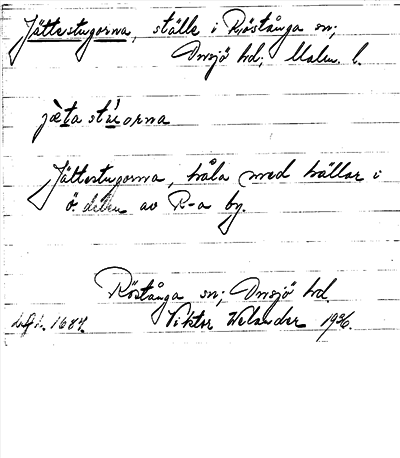 Jättestugorna, ställe i Röstånga sn;
Onsjö hd; Malm. l.
jæta stúorna
Jättestugorna, håla med hällar i
ö. delen av R-a by.
Röstånga sn; Onsjö hd.
1687. Viktor Welander 1936.